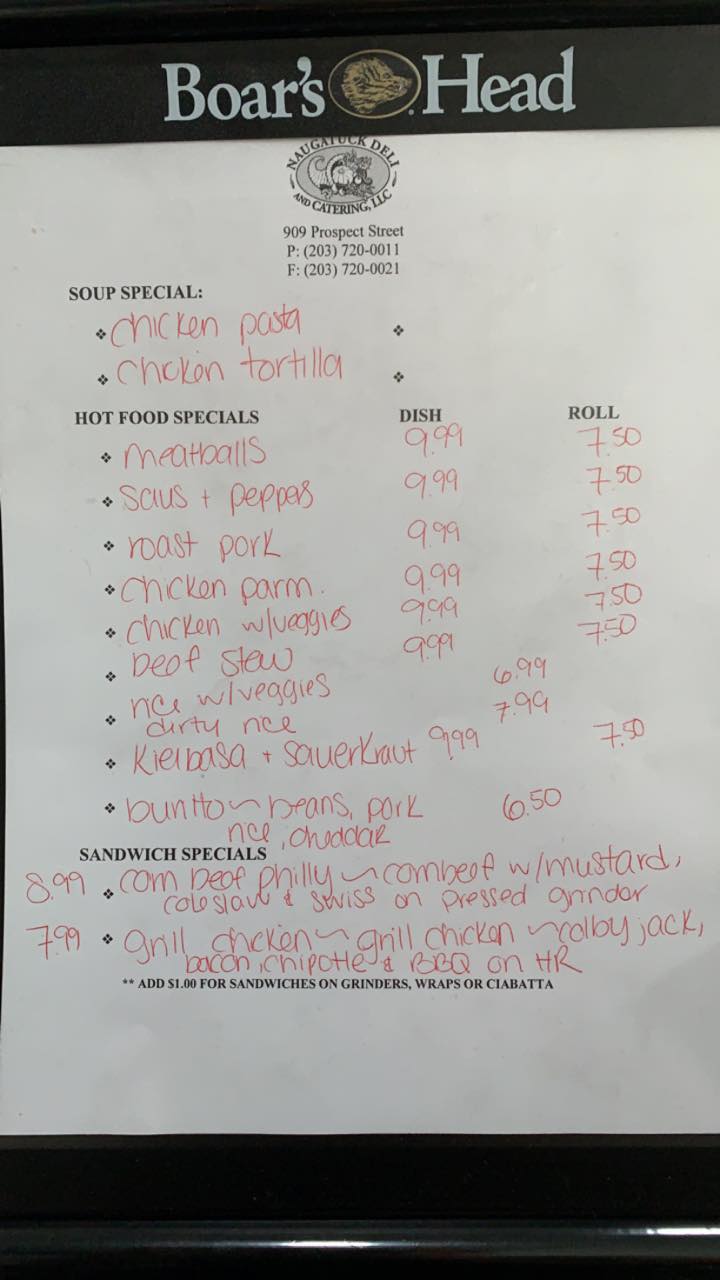 Boar's Head
NAUGATUCK DELI
AND CATERING, LLC
909 Prospect Street
P: (203) 720-0011
F: (203) 720-0021
SOUP SPECIAL:
❖ chicken pasta ❖
❖ chicken tortilla ❖
HOT FOOD SPECIALS DISH ROLL
❖ meatballs 9.99 7.50
❖ saus + peppers 9.99 7.50
❖ roast pork 9.99 7.50
❖ chicken parm. 9.99 7.50
❖ chicken w/veggies 9.99 7.50
❖ beef stew 9.99 7.50
rice w/veggies 6.99
❖ dirty rice 7.99
❖ Kielbasa + sauerkraut 9.99 7.50
❖ burrito ~ beans, pork 6.50
rice, cheddar
SANDWICH SPECIALS
8.99 ❖ corn beef philly ~ cornbeef w/mustard,
coleslaw & swiss on pressed grinder
7.99 ❖ grill chicken ~ grill chicken ~ colby jack,
bacon, chipotle & BBQ on HR
** ADD $1.00 FOR SANDWICHES ON GRINDERS, WRAPS OR CIABATTA